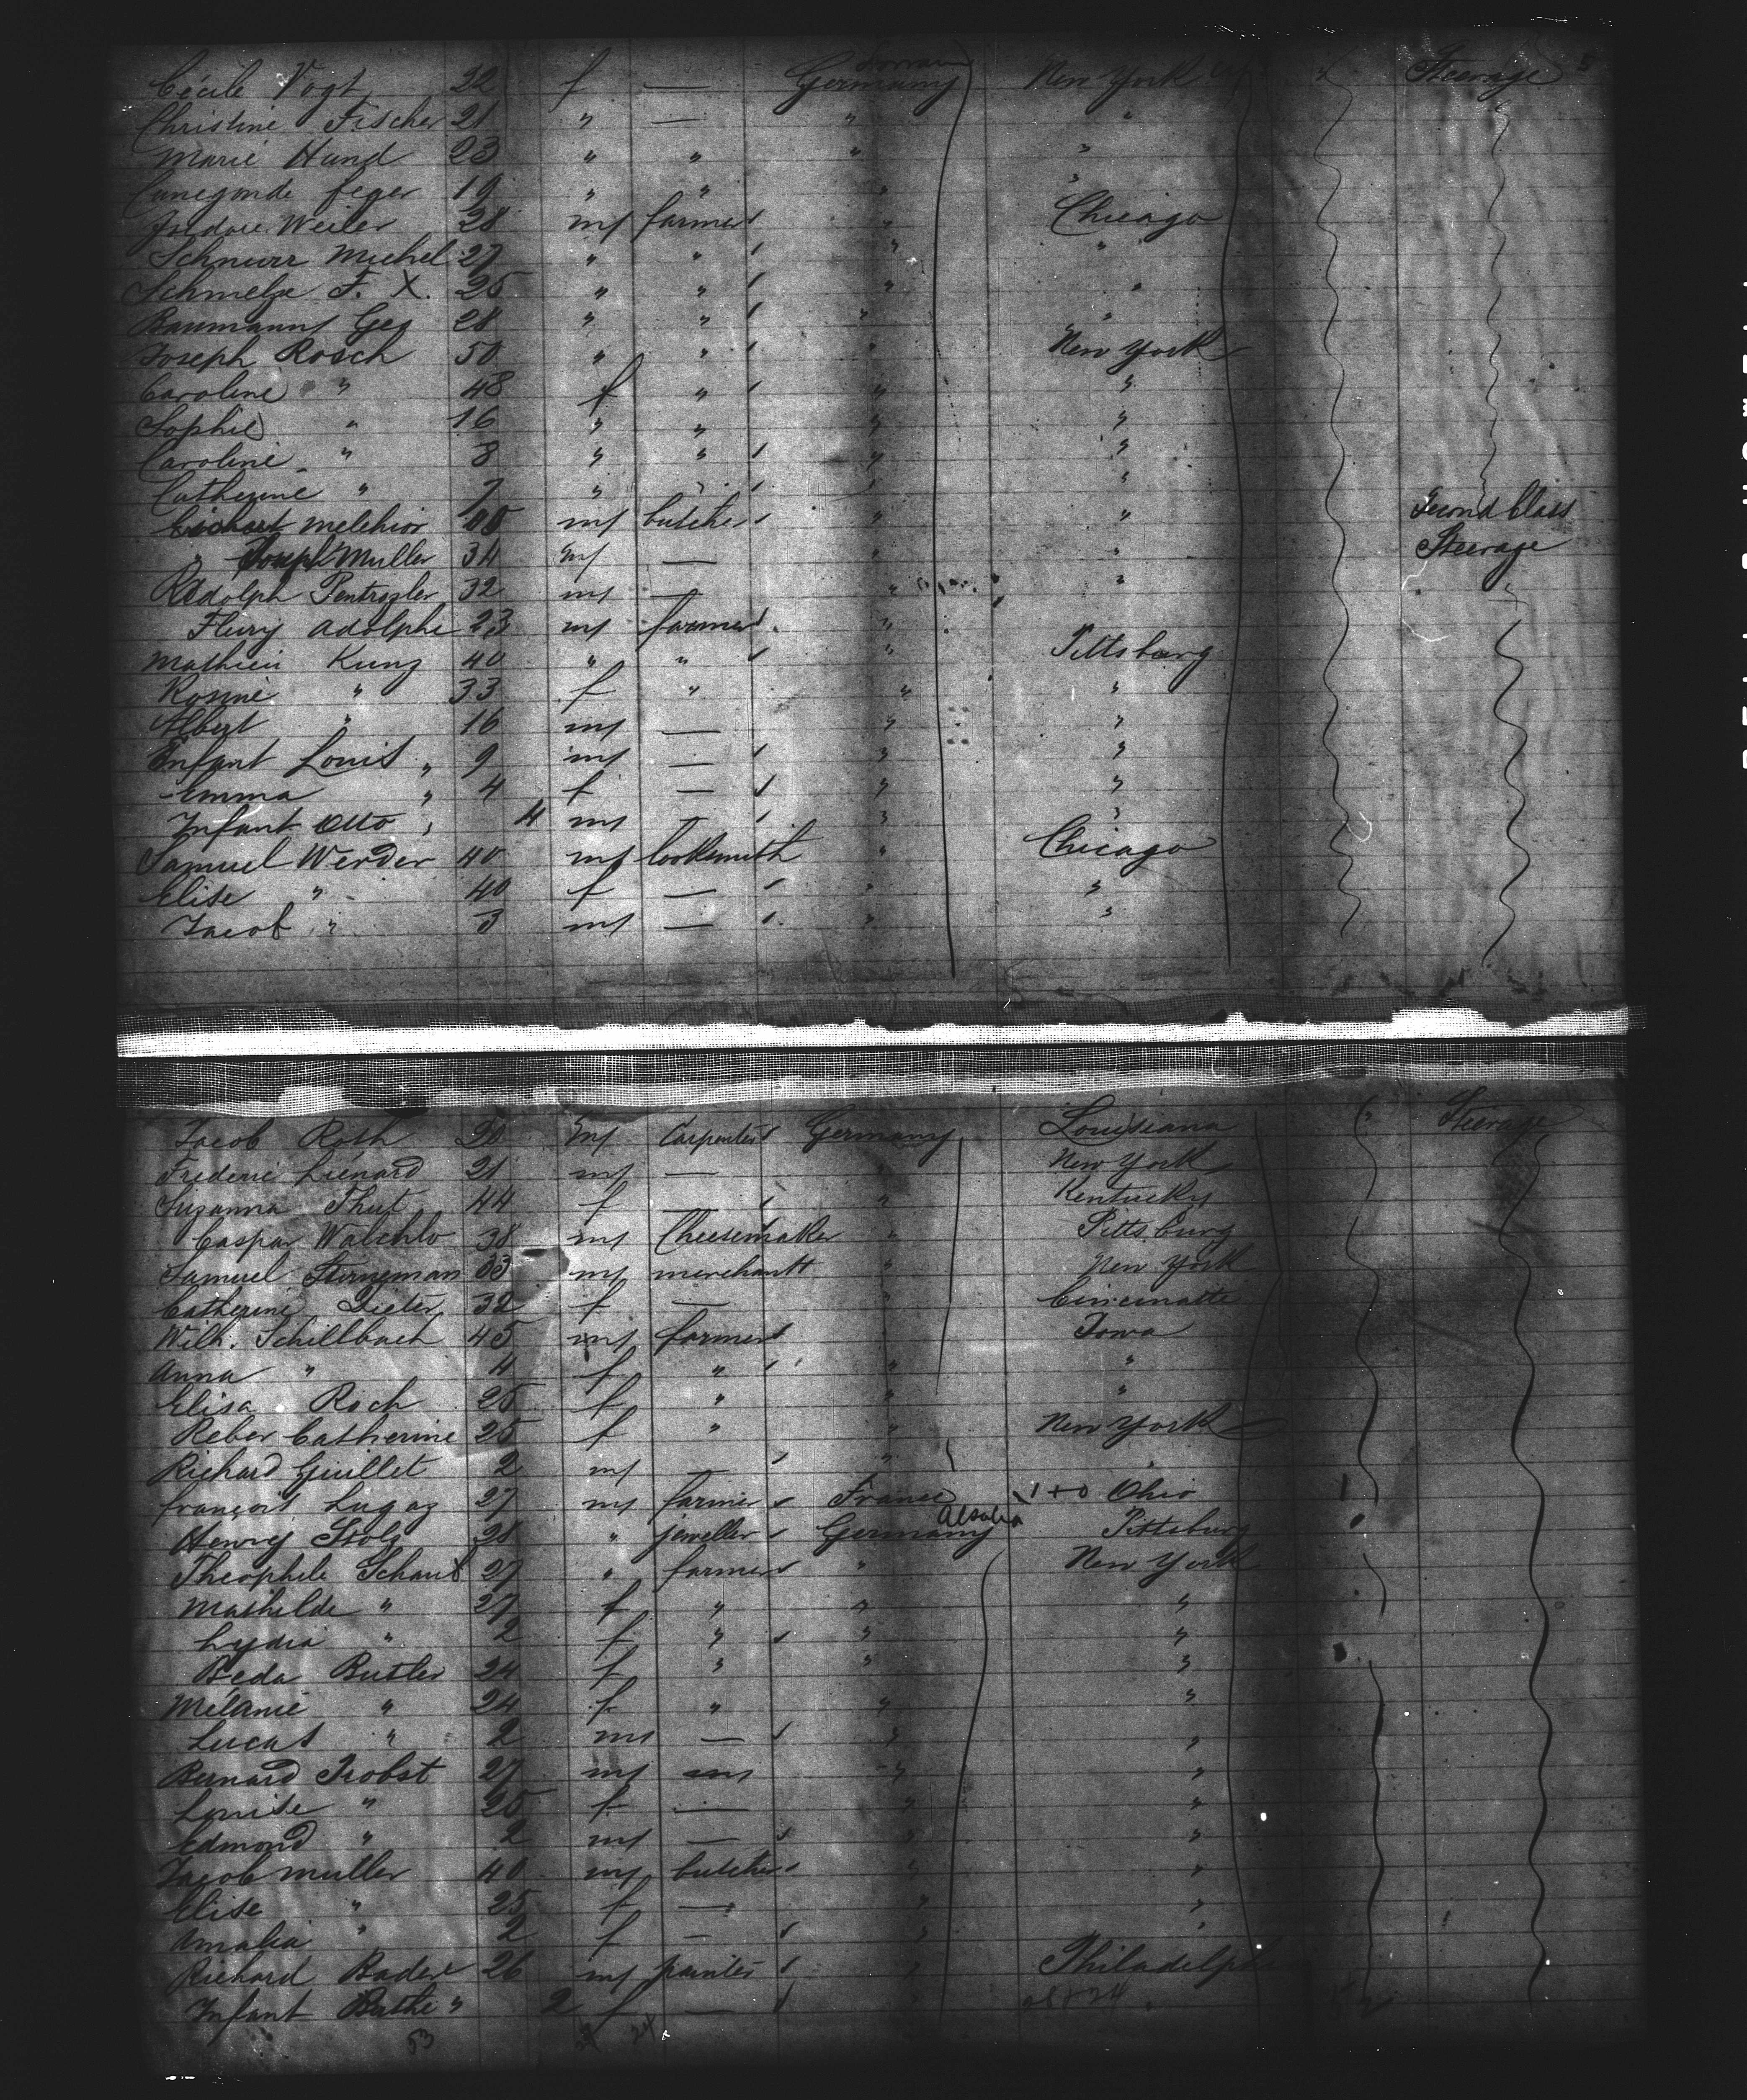 Cécile Vogt 22 f — Germany New York Steerage
Christine Fischer 21 " — " "
Marie Hund 23 " " " "
Cunegonde Feger 19 " " " "
Isidore Weiler 28 m farmer " Chicago
Schnurr Michel 27 " " " "
Schmelze F. X. 25 " " " "
Baumann Geo 28 " " " "
Joseph Rosch 50 " " " New York
Caroline " 48 f " " "
Sophie " 16 " " " "
Caroline " 8 " " " "
Catherine " 7 " " " "
Melchior m butcher " " Second Class
" Joseph Muller 34 m — " " Steerage
Rodolph 32 m — " "
Fleury Adolphe 23 m farmer "
Mathieu Kunz 40 " " " Pittsburg
Rosine " 33 f " " "
Albert " 16 m — " "
Infant Louis " 9 m — " "
Emma " 4 f — " "
Infant Otto " 4 m — " "
Samuel Werder 40 m locksmith " Chicago
Elise " 40 f — " "
Jacob " 3 m — " "
Jacob Roth 20 m Carpenter Germany Louisiana Steerage
Frederic Lienard 21 m — " New York
Suzanna Thut 44 f — " Kentucky
Caspar 38 m Cheesemaker " Pittsburg
Samuel 33 m merchant " New York
Catherine Dieter 32 f — " Cincinatti
Wilh. Schillbach 45 m farmer Iowa
Anna " 4 f " " "
Elisa Roch 25 f " " "
Reber Catherine 25 f " " New York
Richard Guillet 2 m — " "
François Lugaz 27 m farmer France 1+0 Ohio
Alsatia
Henry Stolz 28 " jeweller Germany Pittsburg
Theophile Schaub 27 " farmer " New York
Mathilde " 27 f " " "
Lydia " 2 f " " "
Beda Butler 24 f " " "
Mélanie " 24 f " " "
Lucas " 2 m — " "
Bernard Probst 27 m m " "
Louise " 25 f — " "
Edmond " 2 m — " "
Jacob Muller 40 m butcher " "
Elise " 25 f — " "
Amalia " 2 f — " "
Richard Bader 26 m painter " Philadelphi
Infant " 2 f — " "
53 24